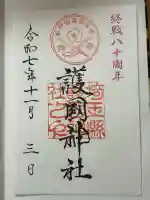 終戦八十周年
護國神社
埼玉縣
令和七年十一月三日